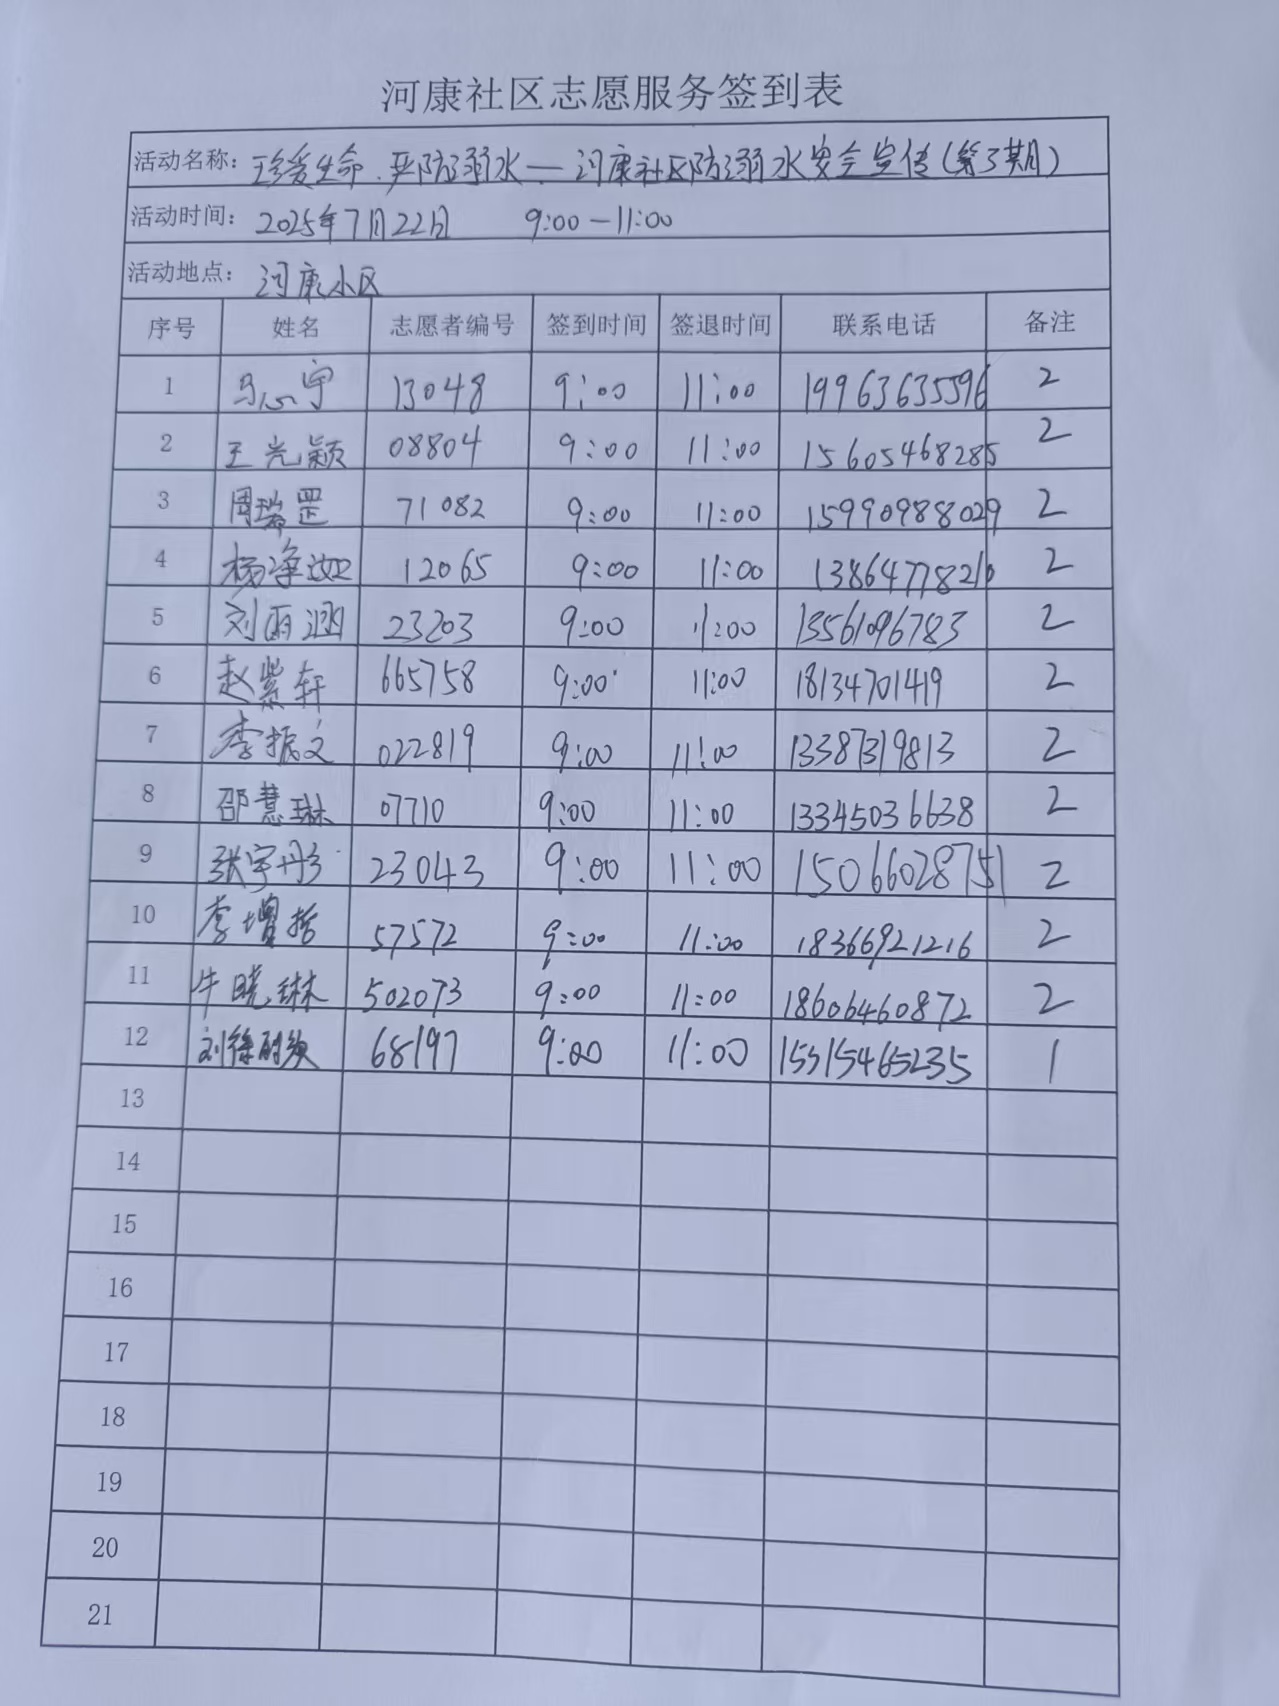 河康社区志愿服务签到表
活动名称: 珍爱生命.严防溺水—河康社区防溺水安全宣传(第3期)
活动时间: 2025年7月22日 9:00-11:00
活动地点: 河康小区
序号 姓名 志愿者编号 签到时间 签退时间 联系电话 备注
1 马心宇 13048 9:00 11:00 19963635596 2
2 王光颖 08804 9:00 11:00 15605468285 2
3 周瑞罡 71082 9:00 11:00 15990988029 2
4 12065 9:00 11:00 13864778210 2
5 刘雨涵 23203 9:00 11:00 13561096783 2
6 赵紫轩 665758 9:00 11:00 18134701419 2
7 李振文 022819 9:00 11:00 13387319813 2
8 邵慧琳 07710 9:00 11:00 13345036638 2
9 张宇彤 23043 9:00 11:00 15066028751 2
10 57572 9:00 11:00 18366921216 2
11 牛晓琳 502073 9:00 11:00 18606460872 2
12 68197 9:00 11:00 15315465235 1
13
14
15
16
17
18
19
20
21